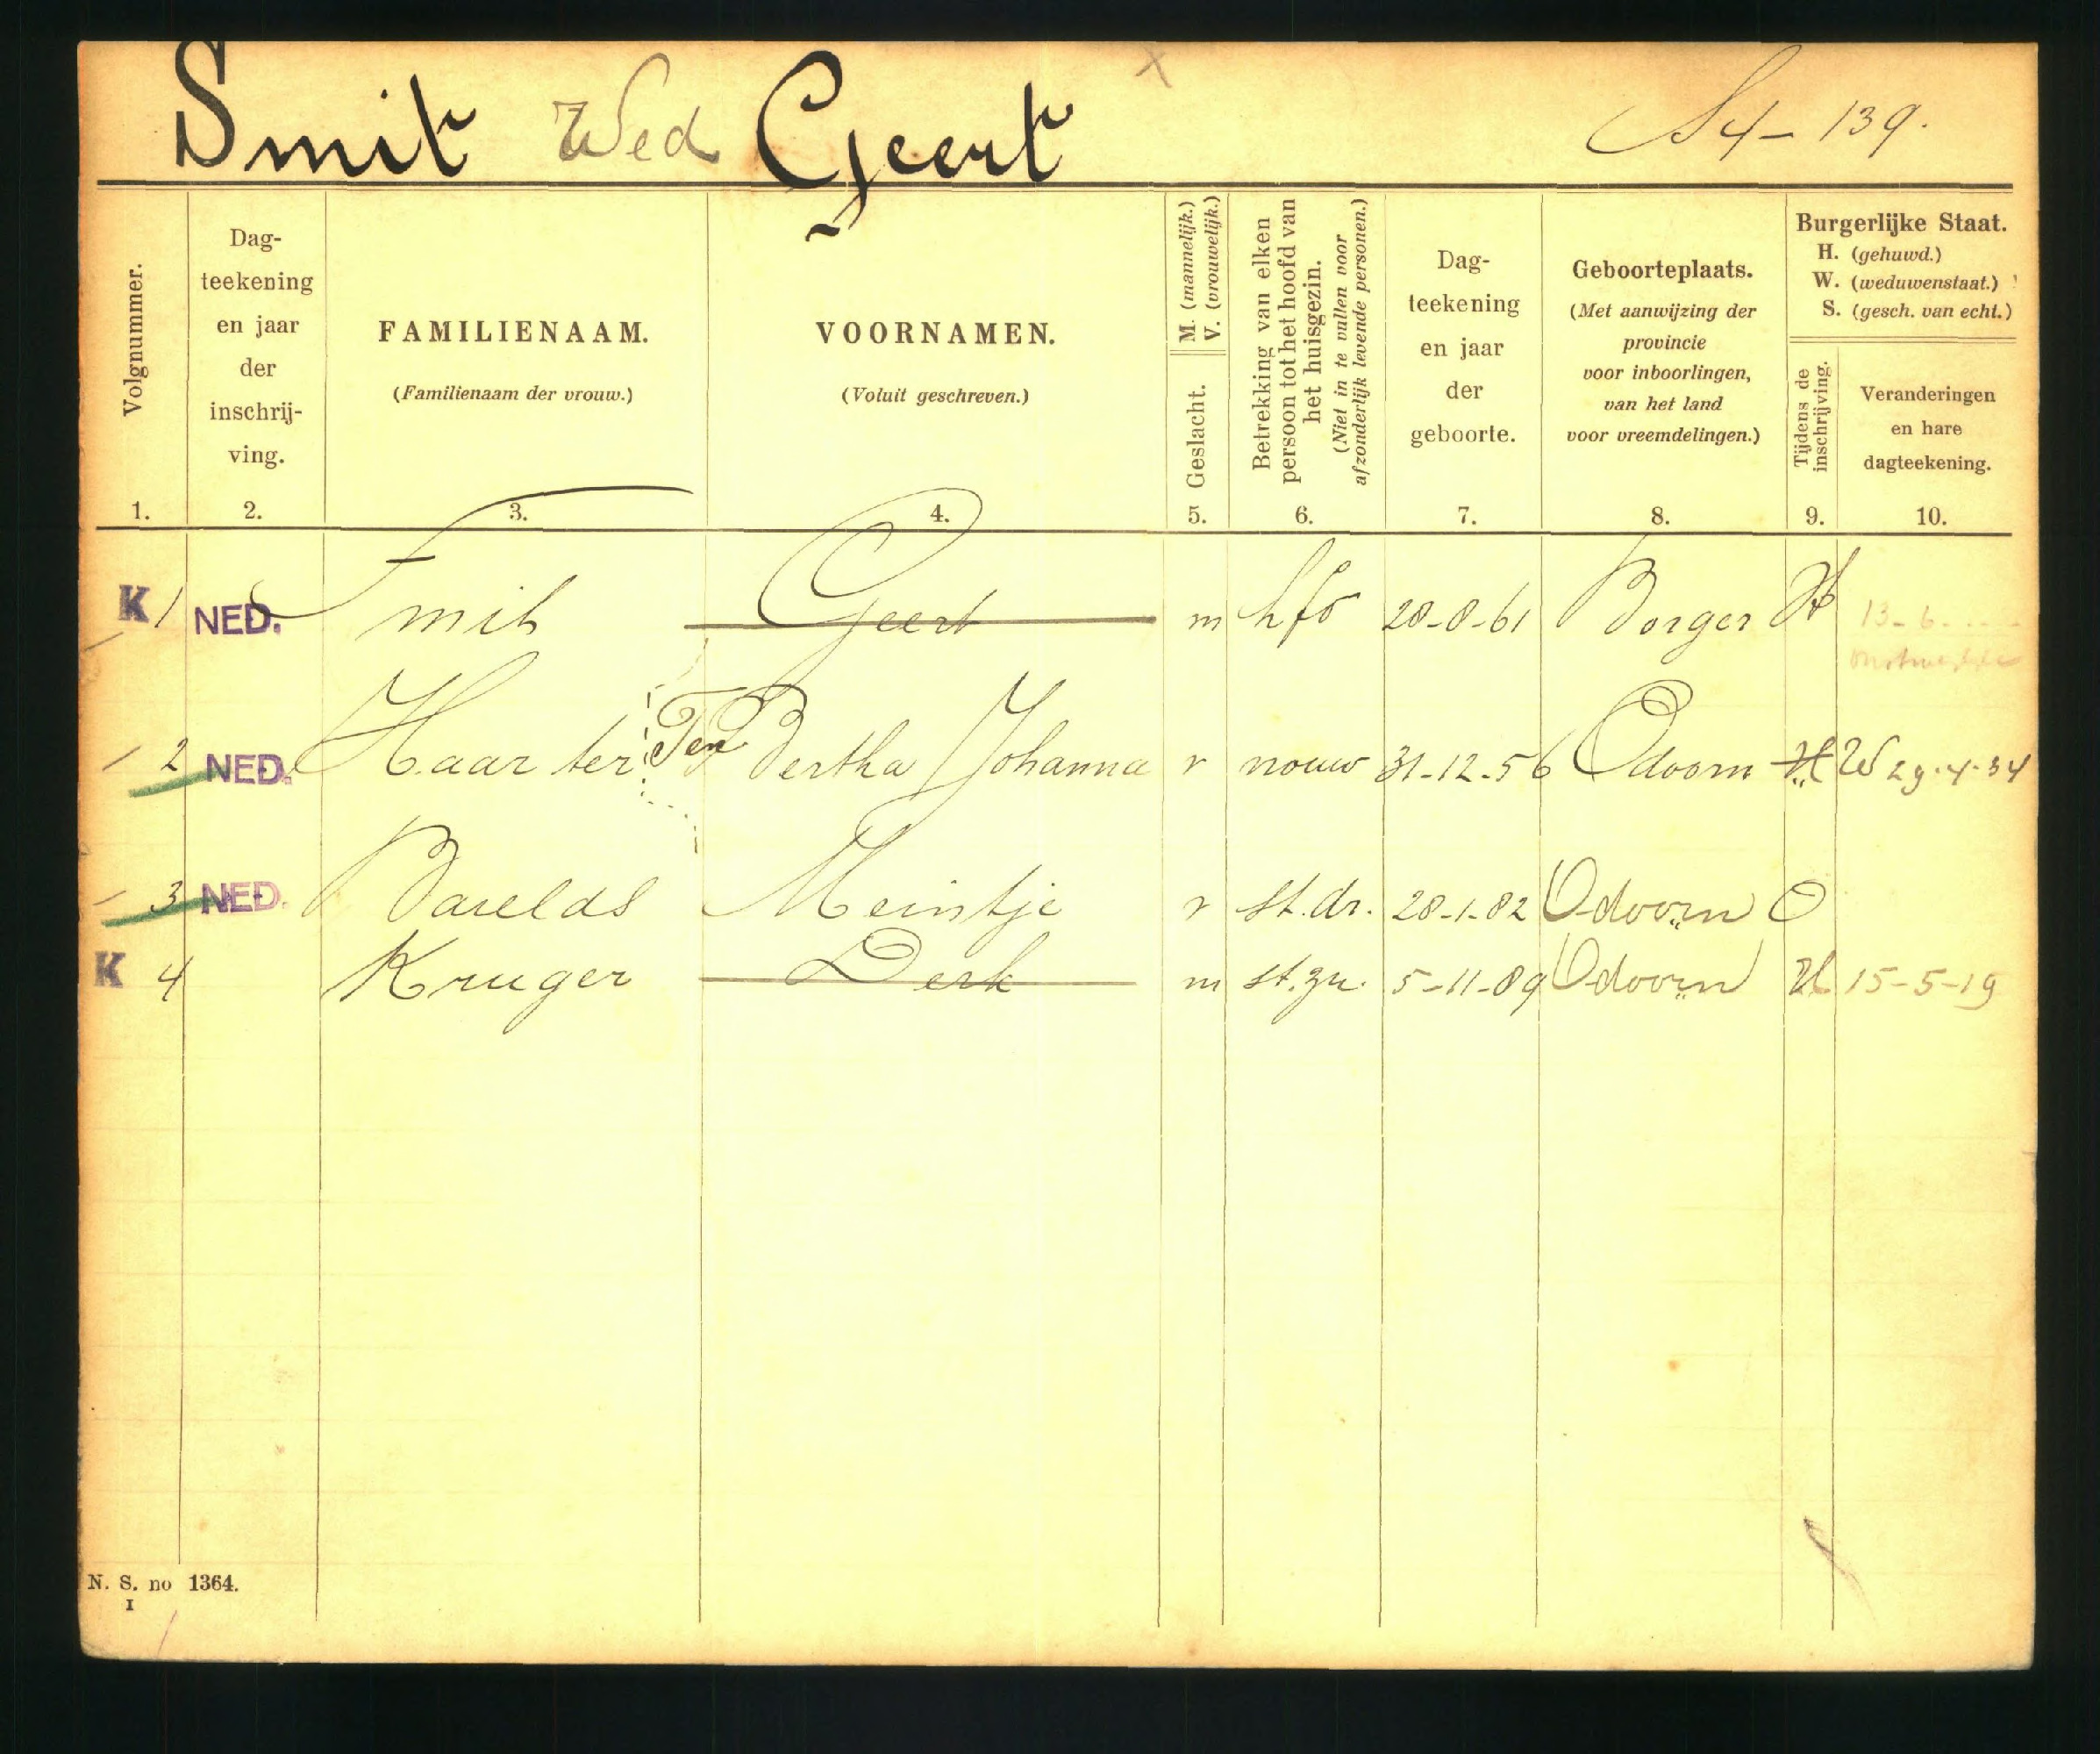 Smit Wed Geert
S4-139.
Volgnummer.
Dag-
teekening
en jaar
der
inschrij-
ving.
FAMILIENAAM.
(Familienaam der vrouw.)
VOORNAMEN.
(Voluit geschreven.)
M. (mannelijk.)
V. (vrouwelijk.)
Geslacht.
Betrekking van elken
persoon tot het hoofd van
het huisgezin.
(Niet in te vullen voor
afzonderlijk levende personen.)
Dag-
teekening
en jaar
der
geboorte.
Geboorteplaats.
(Met aanwijzing der
provincie
voor inboorlingen,
van het land
voor vreemdelingen.)
Burgerlijke Staat.
H. (gehuwd.)
W. (weduwenstaat.)
S. (gesch. van echt.)
Tijdens de
inschrijving.
Veranderingen
en hare
dagteekening.
1. 2. 3. 4. 5. 6. 7. 8. 9. 10.
K 1 NED. Smit Geert m hfd 28-8-61 Borger H
2 NED. Haar ter Ten Bertha Johanna v vrouw 31-12-56 Odoorn H W 29-4-34
3 NED. Barelds Meintje v st.dr. 28-1-82 Odoorn O
K 4 Kruger Derk m st.zn. 5-11-89 Odoorn H 15-5-19
N. S. no 1364.
I